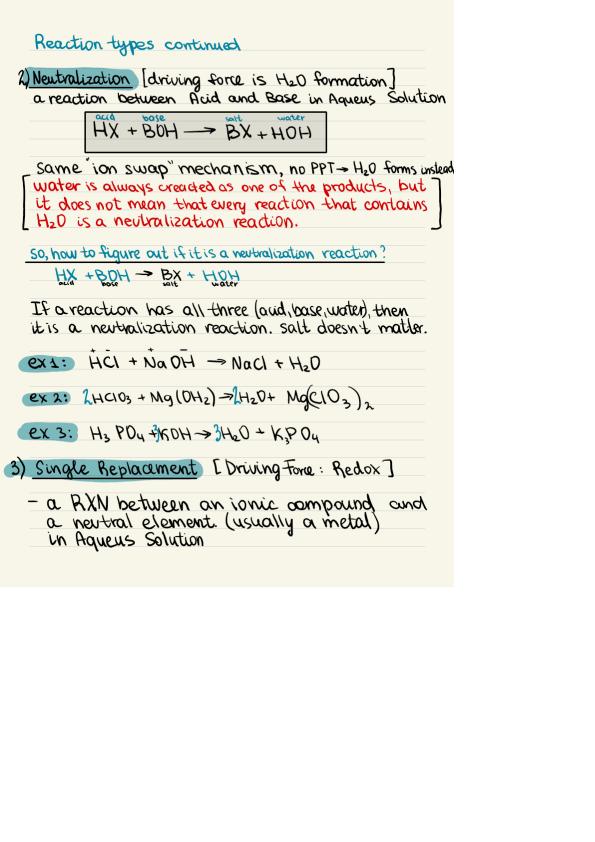 Reaction types continued
2) Neutralization [driving force is H2O formation]
a reaction between Acid and Base in Aqueus Solution
acid base salt water
HX + BOH → BX + HOH
same "ion swap" mechanism, no PPT → H2O forms instead
[water is always created as one of the products, but
it does not mean that every reaction that contains
H2O is a neutralization reaction.]
so, how to figure out if it is a neutralization reaction?
HX + BOH → BX + HOH
acid base salt water
If a reaction has all three (acid, base, water), then
it is a neutralization reaction. salt doesn't matter.
+ - + -
ex 1: HCl + NaOH → NaCl + H2O
ex 2: 2HClO3 + Mg(OH2) → 2H2O + Mg(ClO3)2
ex 3: H3PO4 + 3KOH → 3H2O + K3PO4
3) Single Replacement [Driving Force: Redox]
- a RXN between an ionic compound and
a neutral element. (usually a metal)
in Aqueus Solution